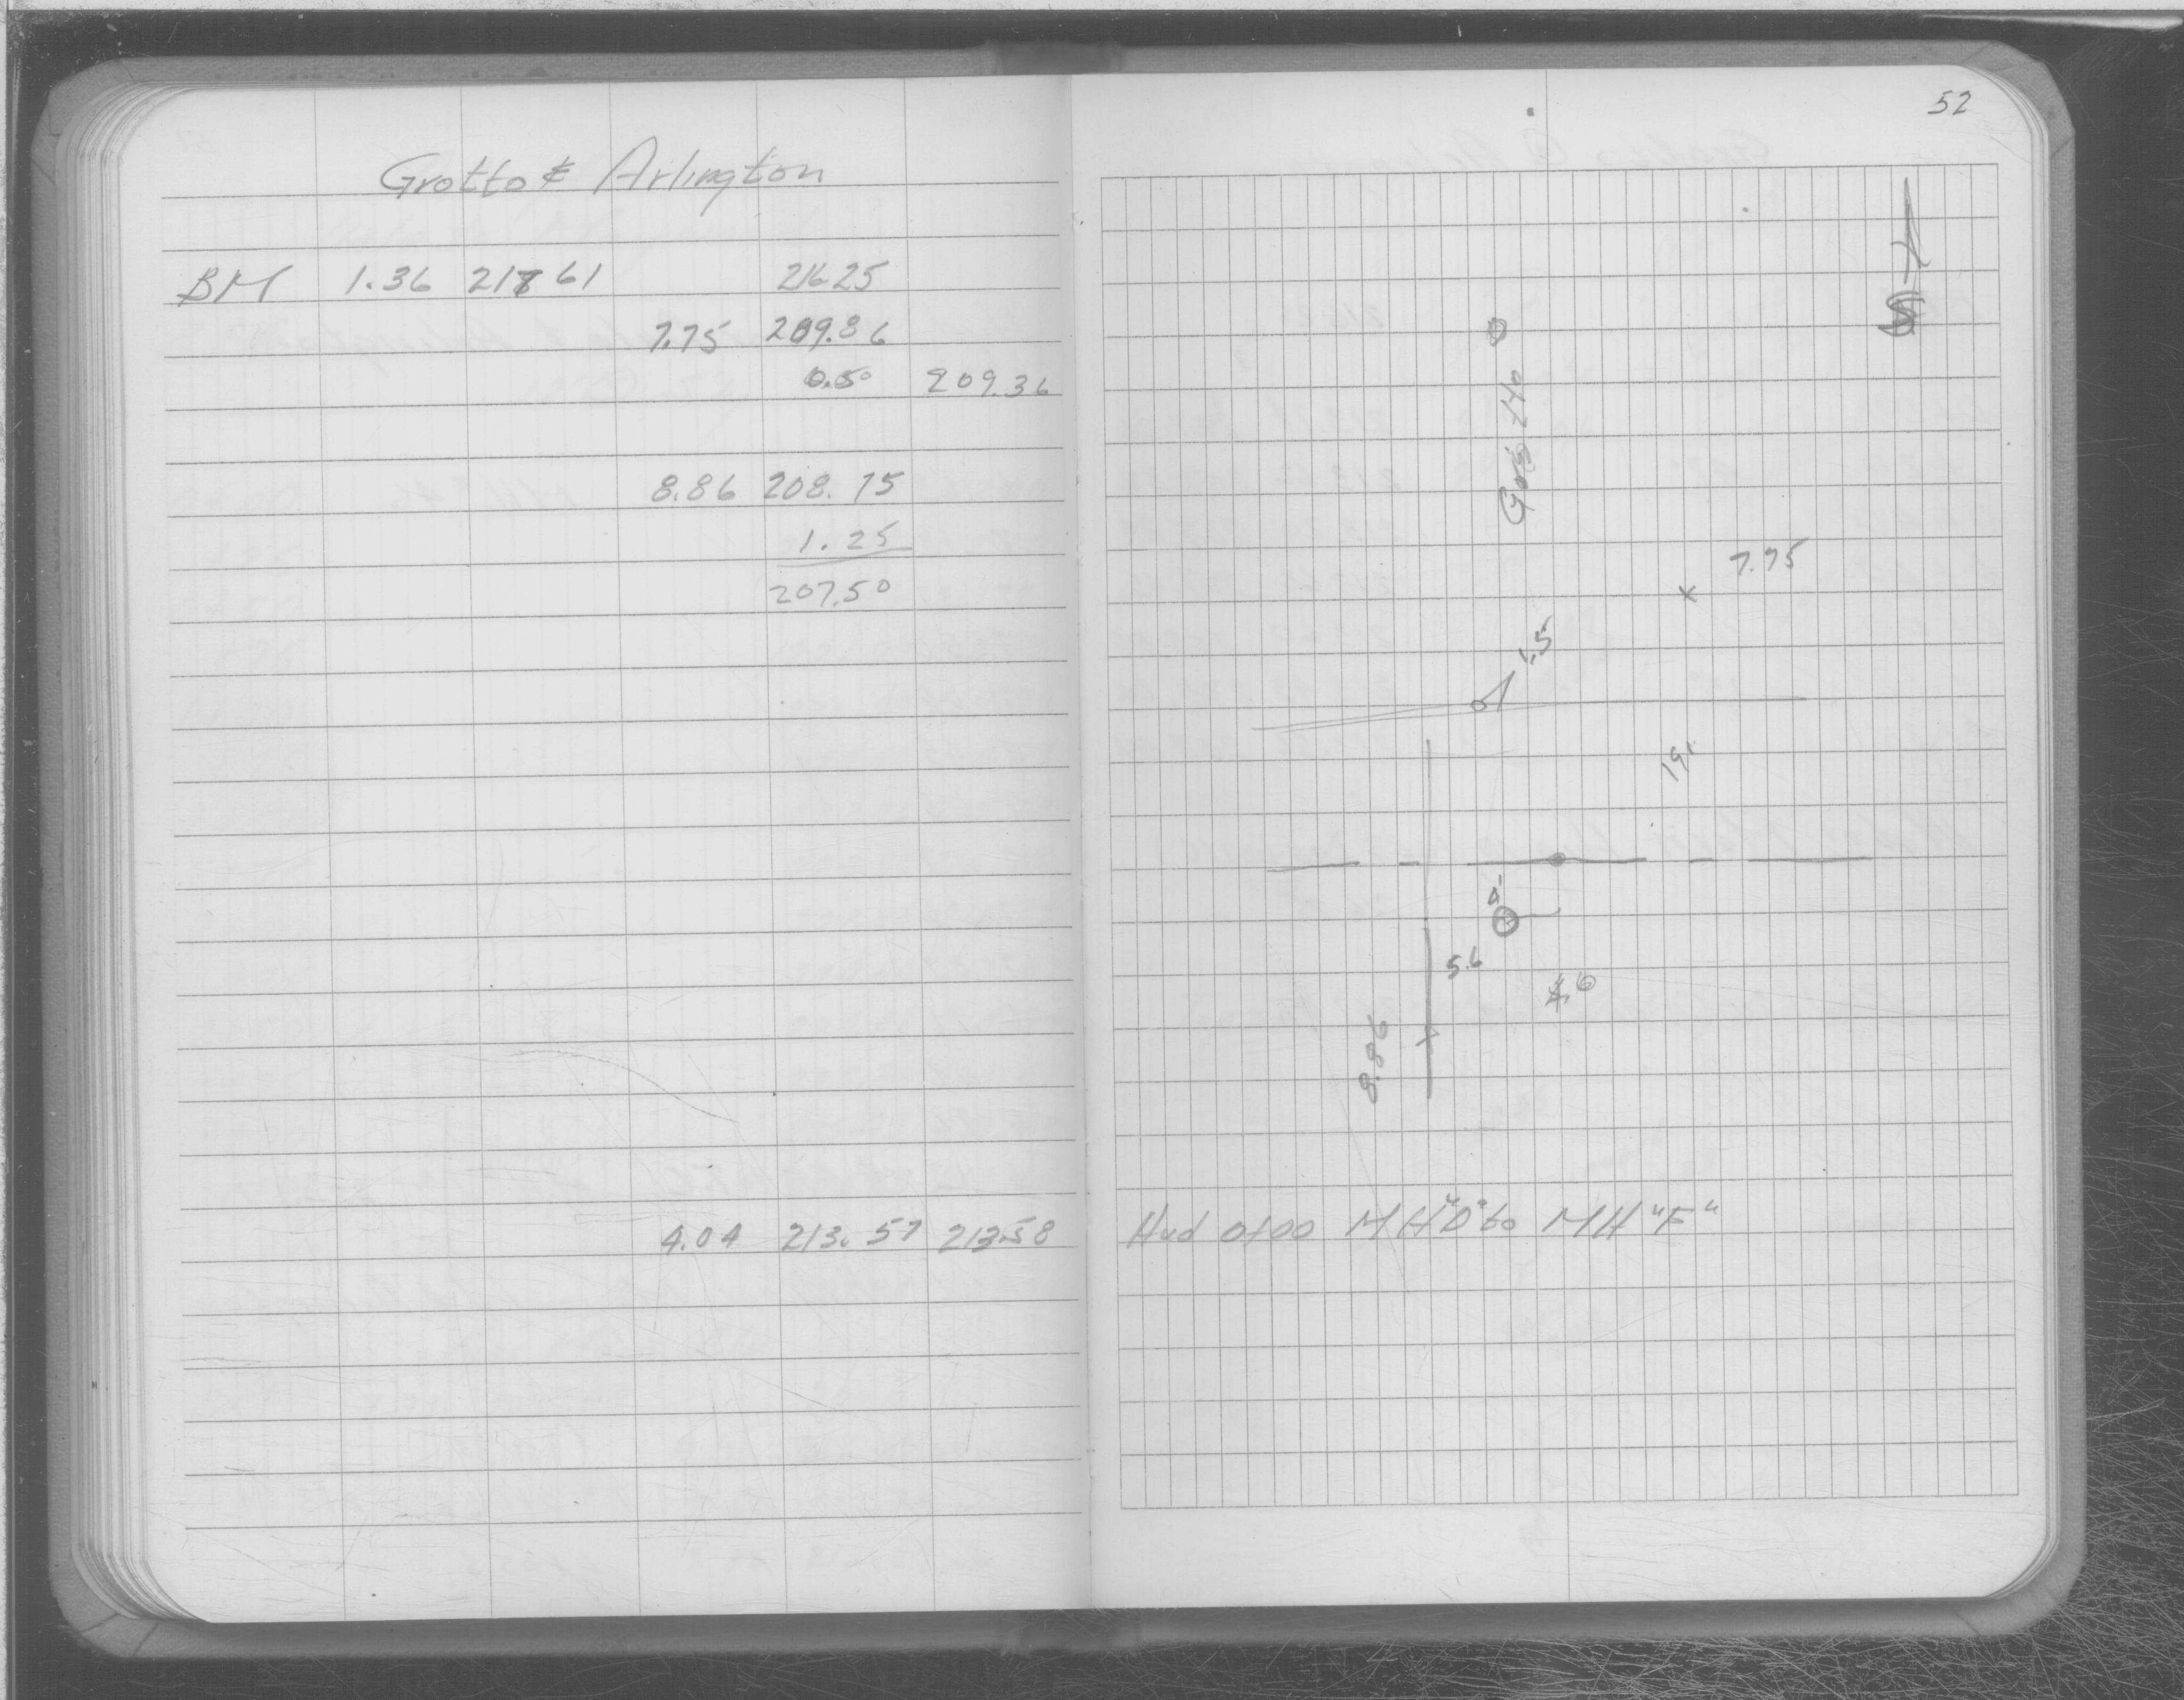 Grotto & Arlington
BM 1.36 217 61 216 25
7.75 209.86
0.50 209.36
8.86 208.75
1.25
207.50
4.04 213.57 213.58
52
Grotto
7.75
1.5
19.1
5.6
4.6
8.86
Hud 0+00 MH "D" to MH "E"